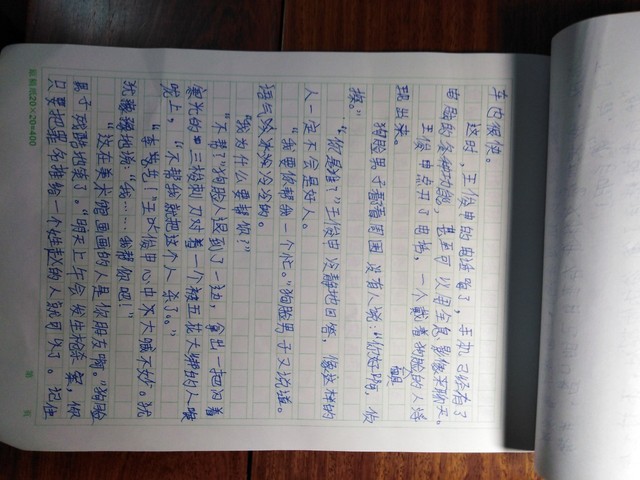 车也很快。
这时，王俊申的电话響了，手机已经有了
首器的各种功能，甚至可以用全息影像来聊天。
王俊申点开了电话，一个戴着狗脸的人浮
现出来。
狗脸男子看着周围没有人说："你好啊，假
操。"
"你是谁？"王俊申冷静地回答，像这样的
人一定不会是好人。
"我要你帮我一个忙。"狗脸男子又说道。
语气冷冰冰冷冷的。
"我为什么要帮你？"
"不帮？"狗脸人退到了一边，拿出一把闪着
寒光的三棱刺刀对着一个被五花大绑的人喉
咙上，"不帮我就把这个人杀了。"
"李艺占！"王俊申心中大喊不妙。犹
犹豫豫地说"我……我帮你吧！"
"这在美术馆画画的人是你朋友啊。"狗脸
男子残酷地笑了。"明天上午会发生枪杀案，你
只要把罪名推给一个姓赵的人就可以了。记住
纵横纸20×20=400
第 页